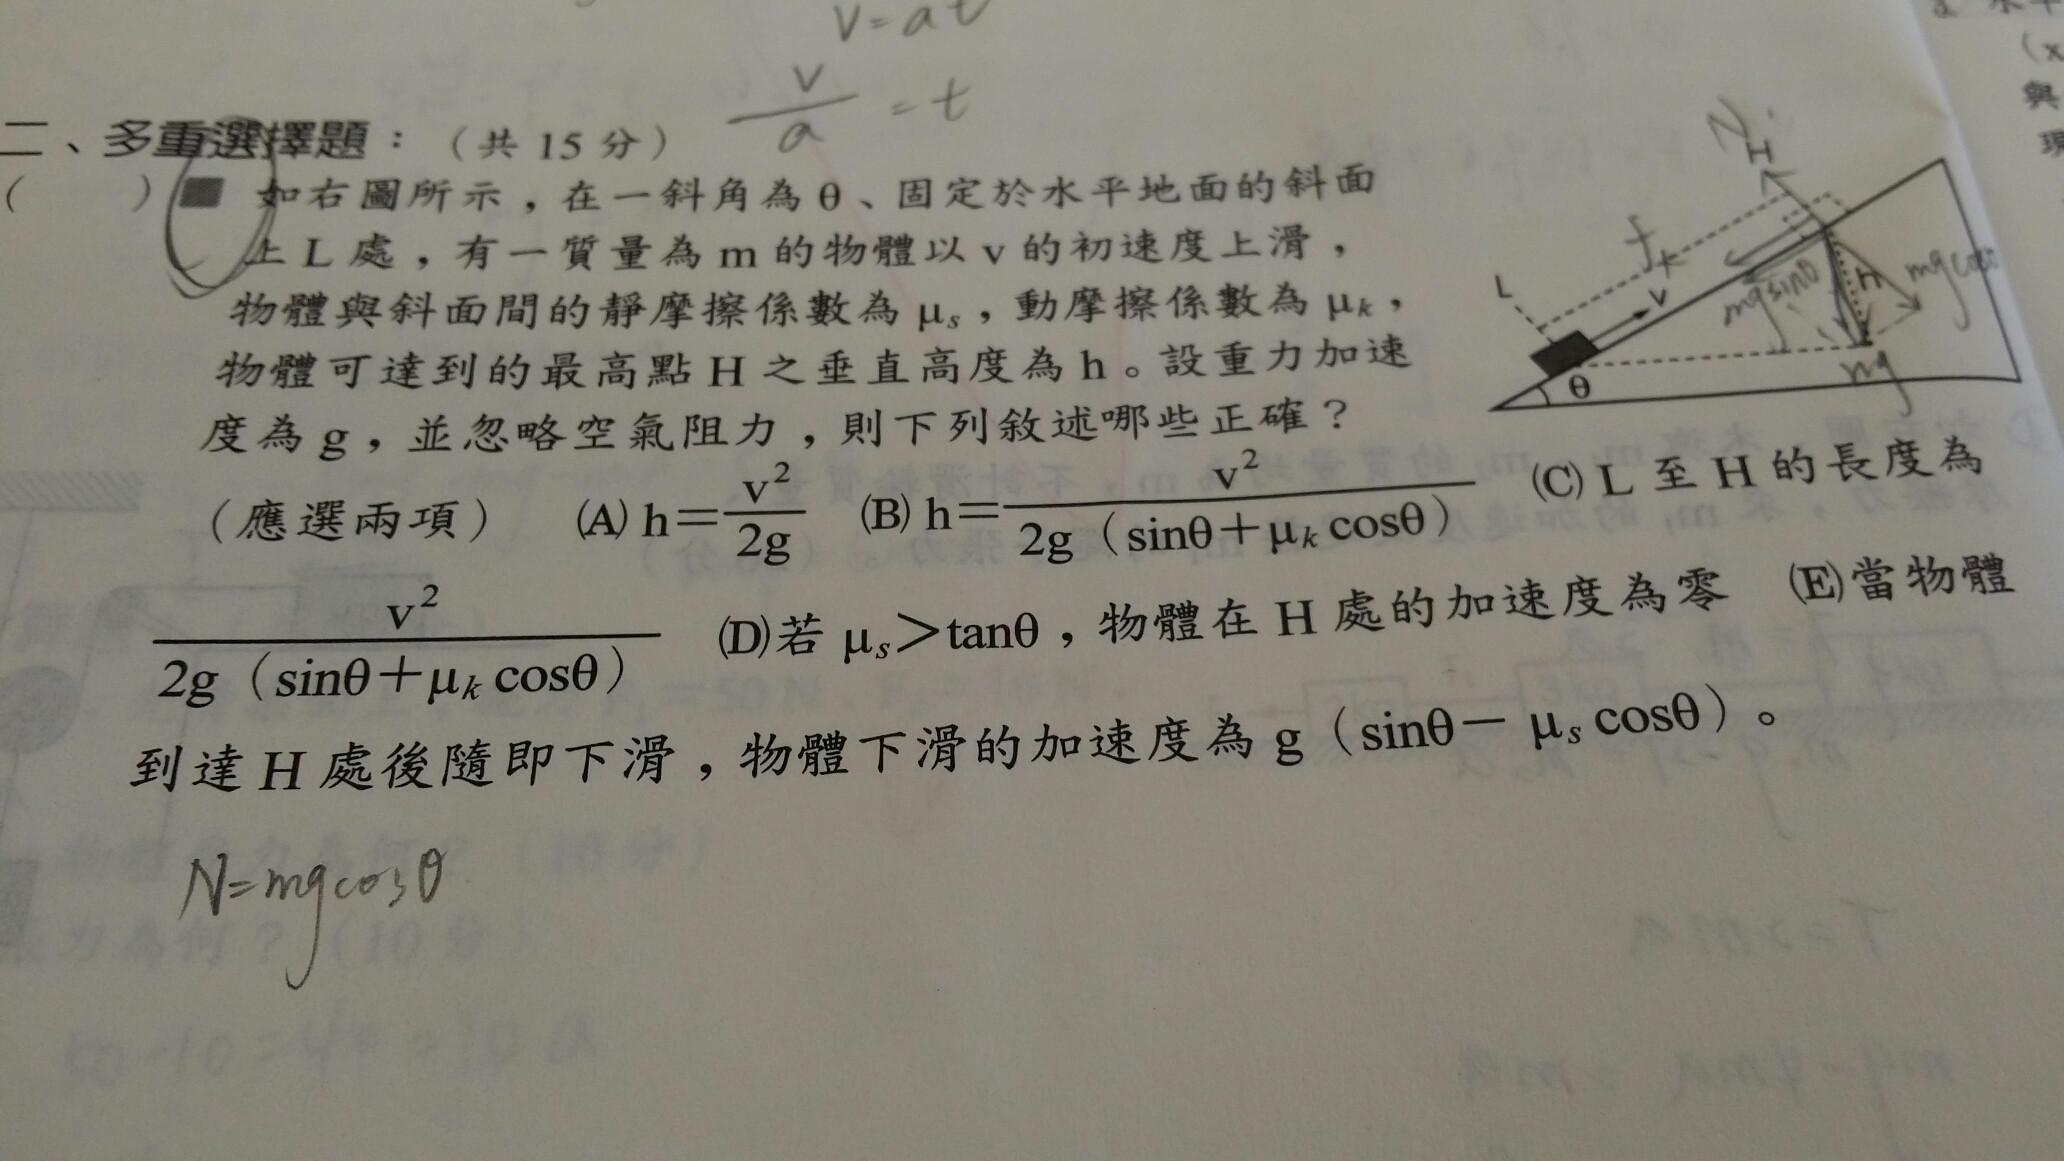 v=at
v/a=t
二、多重選擇題：（共 15 分）
（　　）■ 如右圖所示，在一斜角為θ、固定於水平地面的斜面
上 L 處，有一質量為 m 的物體以 v 的初速度上滑，
物體與斜面間的靜摩擦係數為 μs，動摩擦係數為 μk，
物體可達到的最高點 H 之垂直高度為 h。設重力加速
度為 g，並忽略空氣阻力，則下列敘述哪些正確？
（應選兩項） (A) h＝v²/2g (B) h＝v²/2g（sinθ＋μk cosθ） (C) L 至 H 的長度為
v²/2g（sinθ＋μk cosθ） (D)若 μs＞tanθ，物體在 H 處的加速度為零 (E)當物體
到達 H 處後隨即下滑，物體下滑的加速度為 g（sinθ－ μs cosθ）。
N
H
fk
L
v
mg sinθ
h
mg cosθ
mg
θ
N=mg cosθ